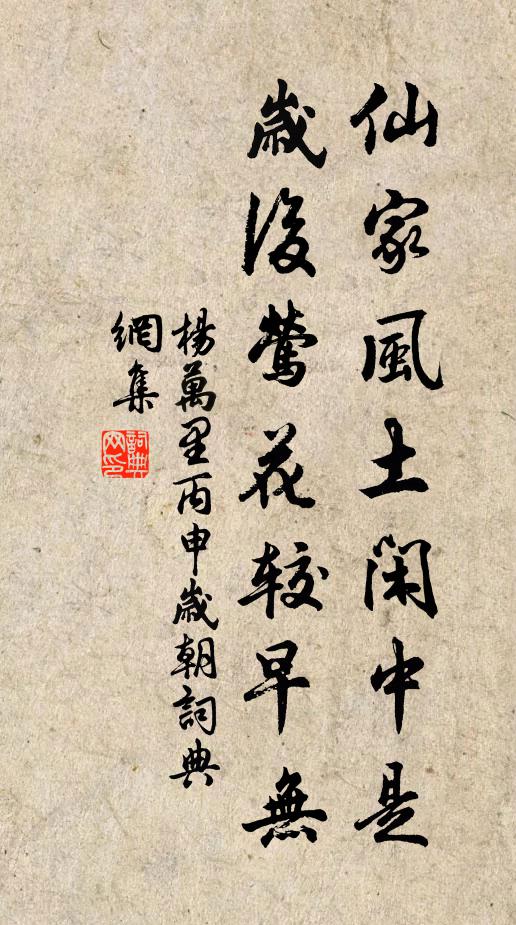 仙家風土閑中是
歲後鶯花較早無
楊萬里丙申歲朝詞典
網集
詞典
网印